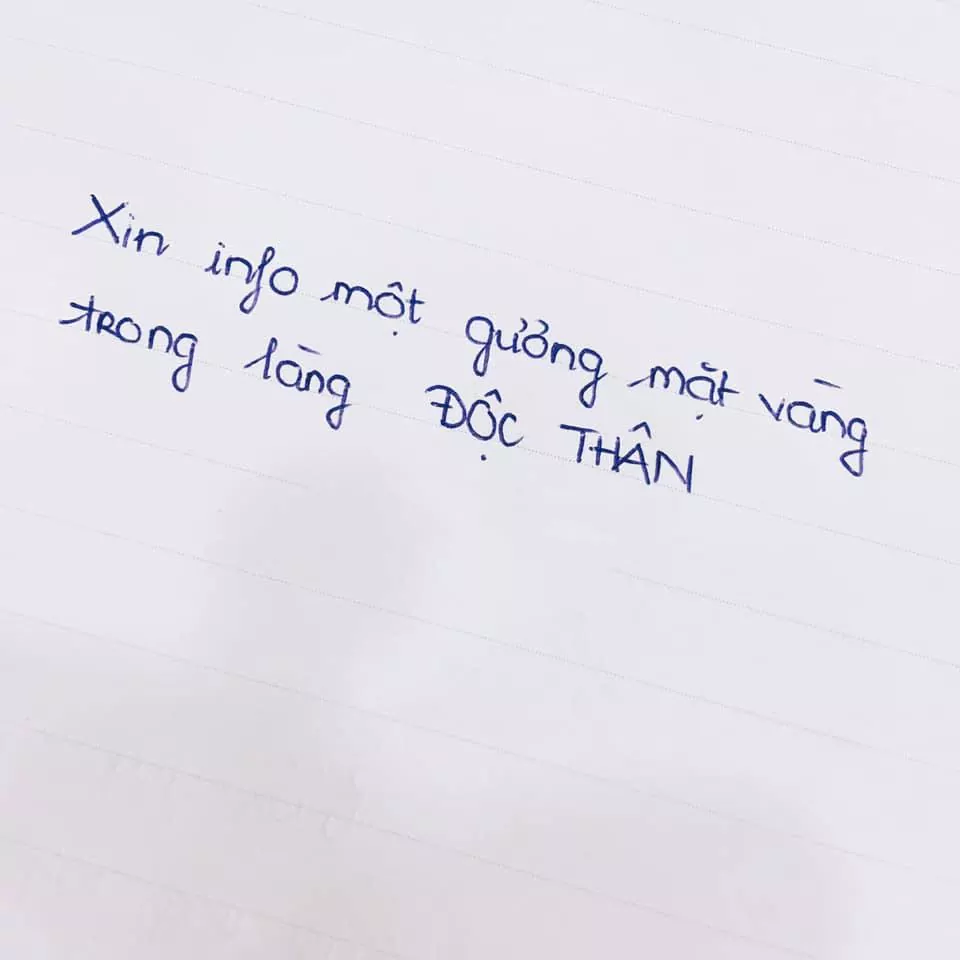 Xin info một gưởng mặt vàng
trong làng ĐỘC THÂN